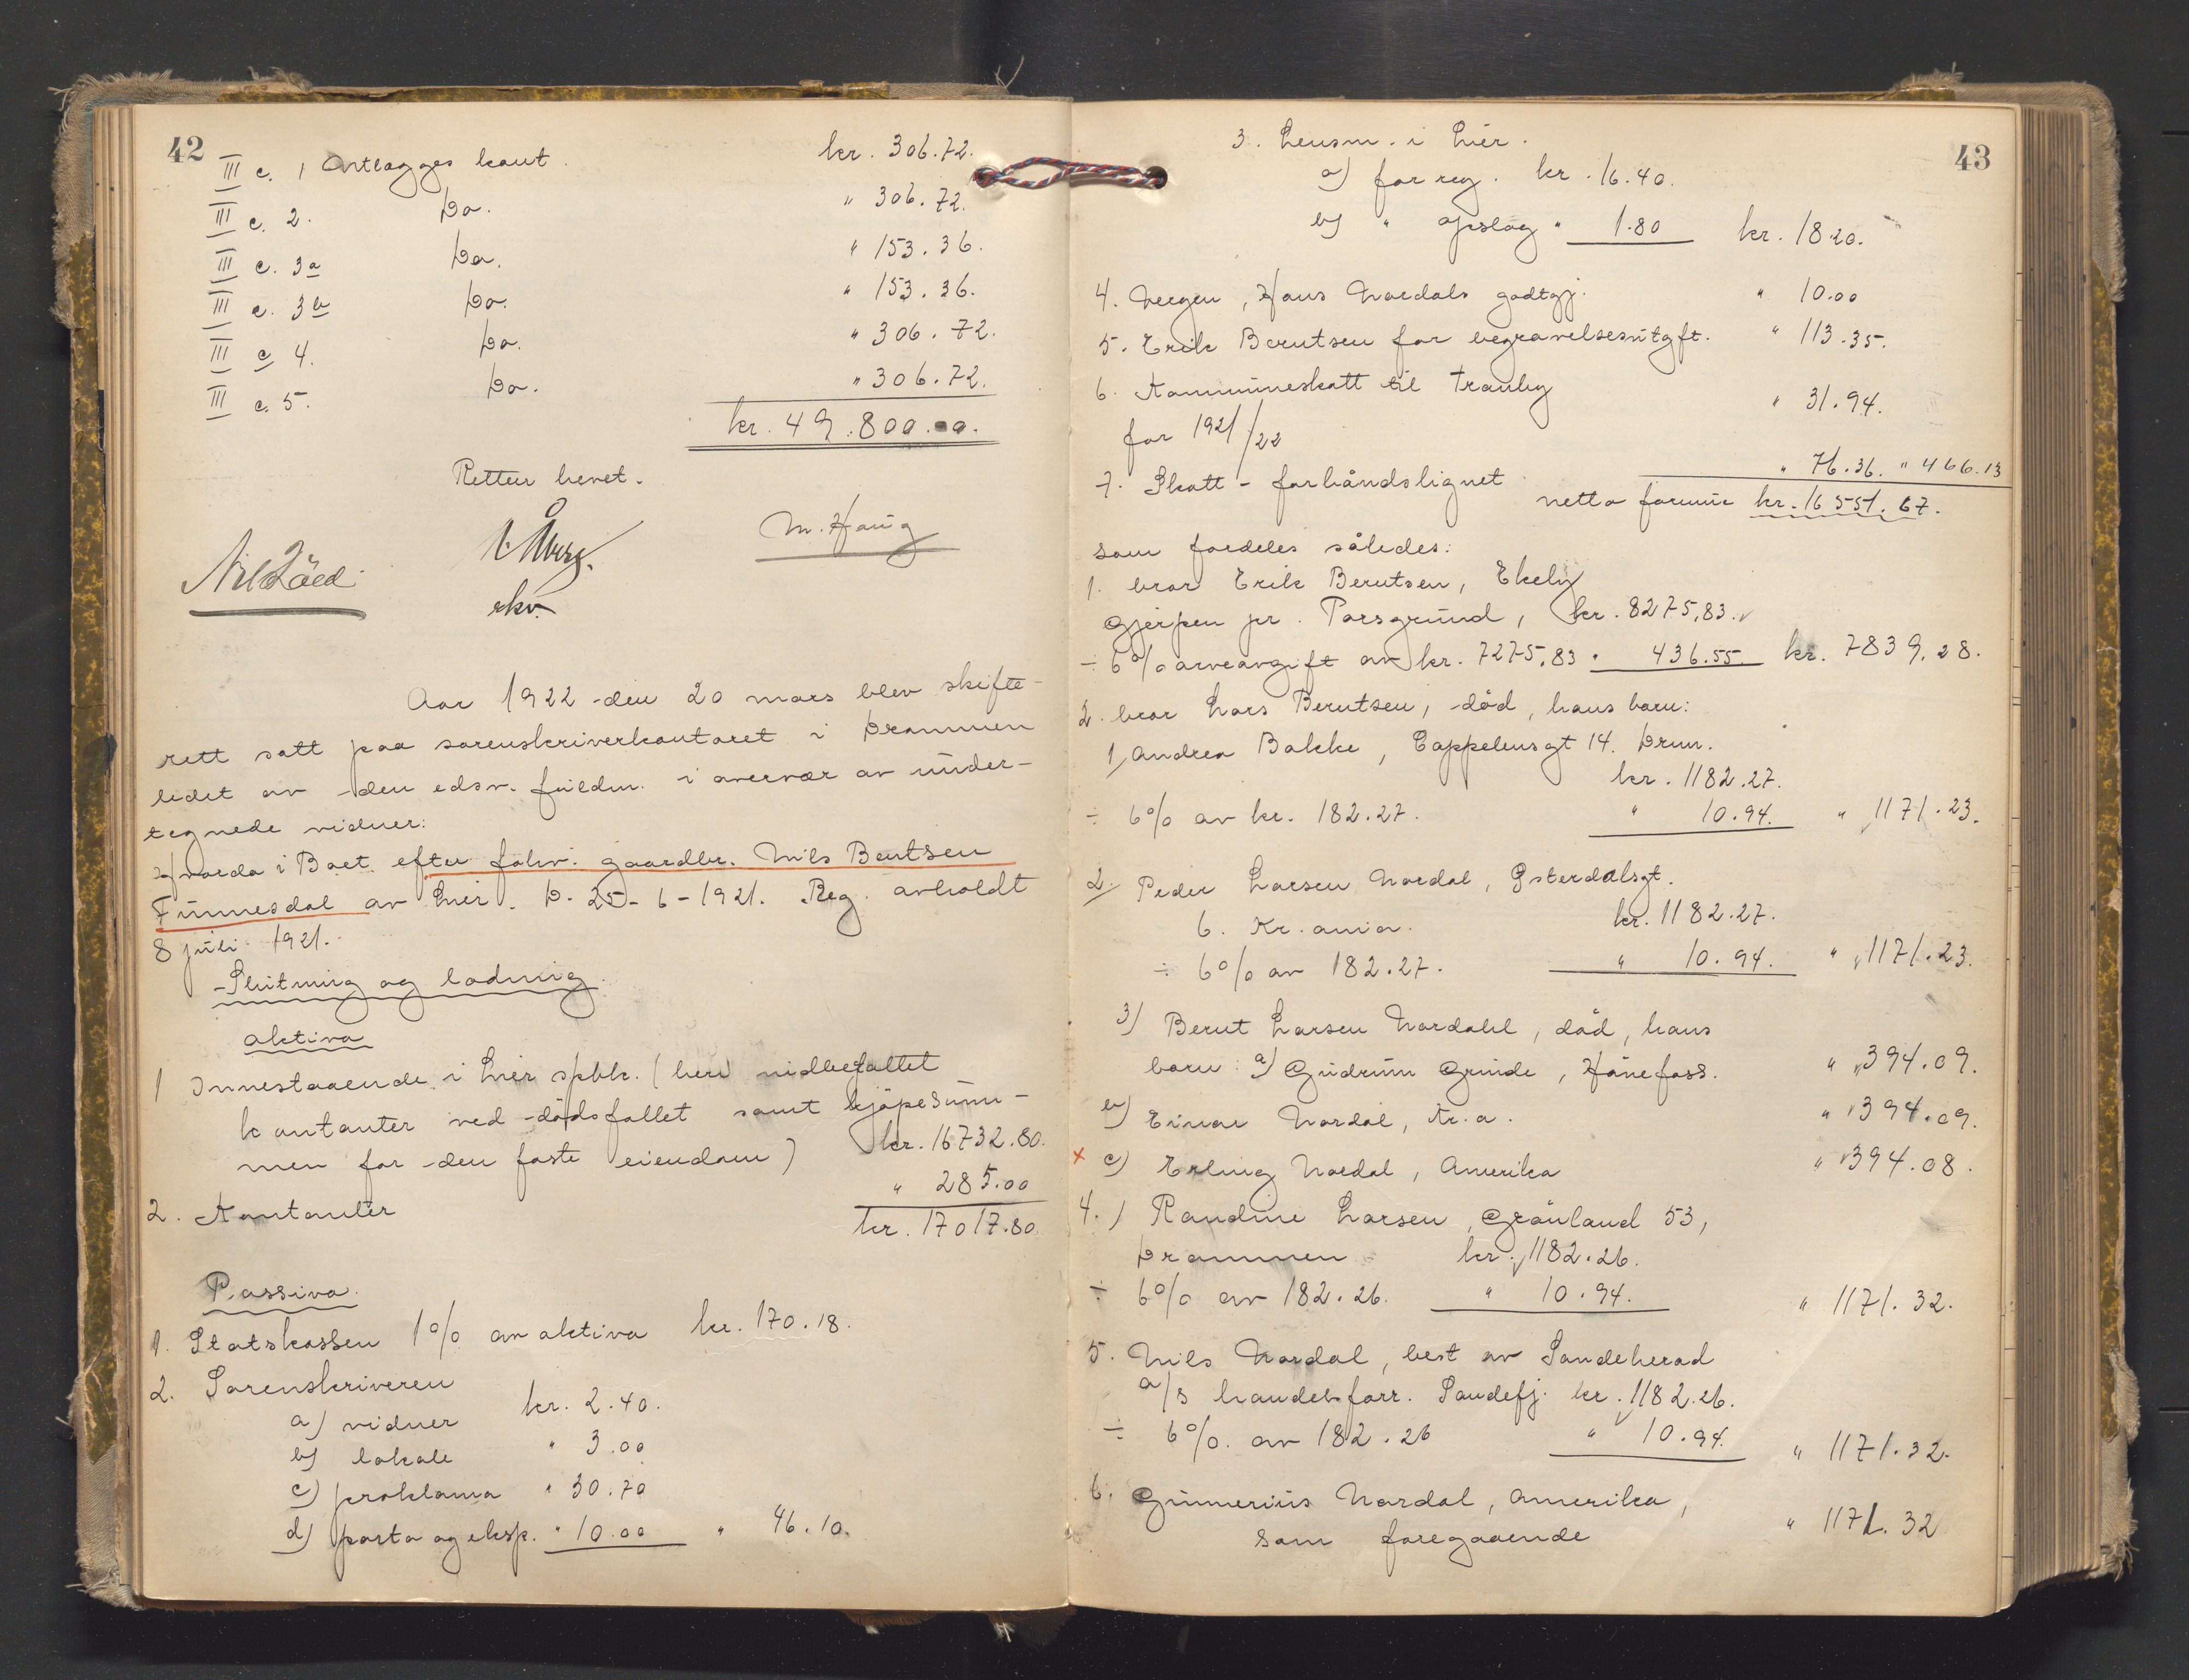 42
III c. 1 Utlagges kont. kr. 306.72.
III c. 2. Do. " 306.72.
III c. 3a Do. " 153.36.
III c. 3b Do. " 153.36.
III c 4. Do. " 306.72.
III c. 5. Do. " 306.72.
kr. 49.800.00.
Retten hevet.
M. Haug
Aar 1922 den 20 mars blev skifte-
rett satt paa sorenskriverkontoret i Drammen
ledet av den edsv. fuldm. i overvær av under-
tegnede vidner:
Hvorda i Boet efter fohv. gaardbr. Nils Bentsen
Tinnesdal av Lier. D. 25-6-1921. Reg. avholdt
8 juli 1921.
Slutning og lodning.
aktiva
1 Innestaaende i Lier spbk. (heri indbefattet
kontanter ved dødsfallet samt kjøpesum-
men for den faste eiendom) kr. 16732.80.
2. Kontanter " 285.00
kr. 17017.80.
Passiva.
1. Statskassen 1% av aktiva kr. 170.18.
2. Sorenskriveren
a) vidner kr. 2.40.
b) lokale " 3.00
c) proklama " 30.70
d) porto og eksp. " 10.00 " 46.10.
43
3. Lensm. i Lier.
a) for reg. kr. 16.40.
b) " opslag " 1.80 kr. 18.20.
4. Vergen, Hans Nordals godtgj. " 10.00
5. Erik Berntsen for begravelsesutgft. " 113.35.
6. Kommuneskatt til Tranby
for 1921/22 " 31.94.
7. Skatt - forhåndslignet " 76.36. " 466.13
netto formue kr. 16551.67.
som fordeles således:
1. bror Erik Berntsen, Ekely
Gjerpen pr. Porsgrund, kr. 8275,83.
÷ 6% arveavgift av kr. 7275,83 " 436.55 kr. 7839.28.
2. bror Lars Berntsen, død, hans barn:
1, Andrea Bakke, Cappelensgt 14. Drm.
kr. 1182.27.
÷ 6% av kr. 182.27. " 10.94. " 1171.23.
2. Peder Larsen Nordal, Østerdalsgt.
6. Kr.ania. kr. 1182.27.
÷ 6% av 182.27. " 10.94. " 1171.23.
3) Bernt Larsen Nordahl, død, hans
barn: a) Gudrun Grinde, Hønefoss. " 394.09.
b) Einar Nordal, Kr.a. " 394.09.
x c) Erling Nordal, Amerika " 394.08.
4.) Randine Larsen, Grønland 53,
Drammen kr. 1182.26.
÷ 6% av 182.26. " 10.94. " 1171.32.
5. Nils Nordal, best av Sandeherad
a/s handelsforr. Sandefj. kr. 1182.26.
÷ 6%. av 182.26 " 10.94. " 1171.32.
6. Gunnerius Nordal, Amerika,
som foregaaende " 1171.32